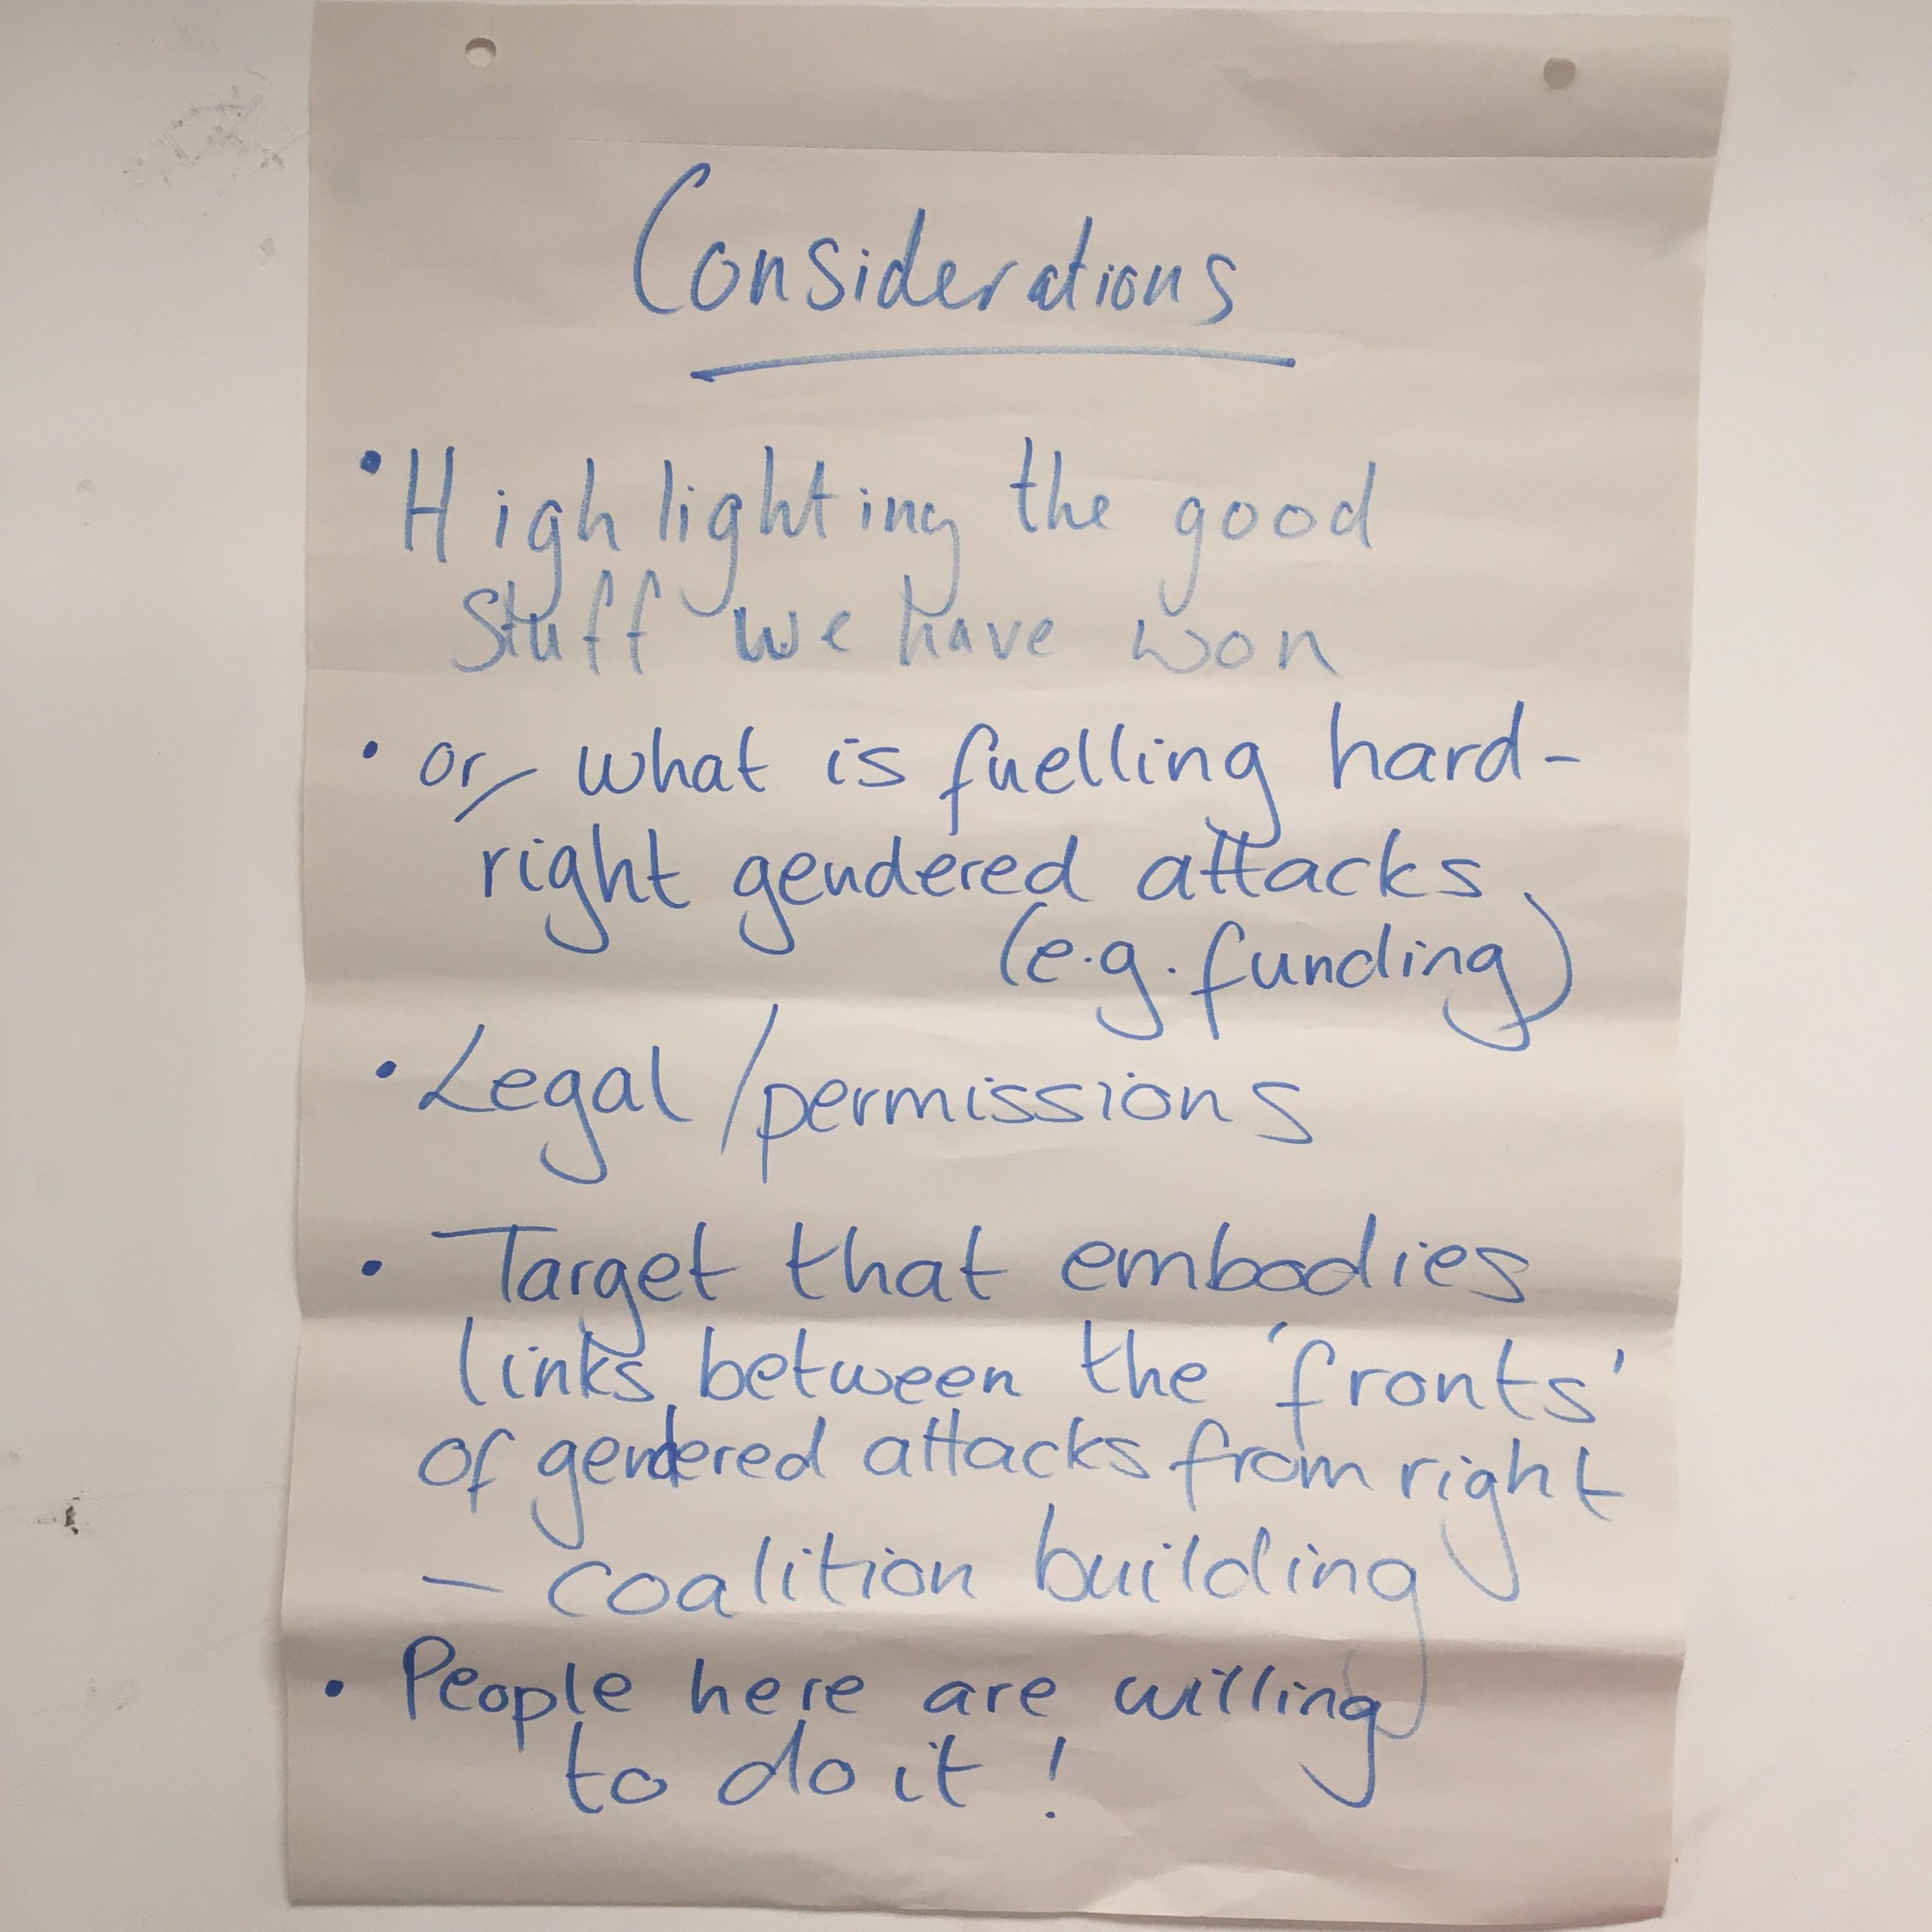 Considerations
• Highlighting the good
stuff we have won
• or what is fuelling hard-
right gendered attacks
(e.g. funding)
• Legal/permissions
• Target that embodies
links between the 'fronts'
of gendered attacks from right
— coalition building
• People here are willing
to do it!